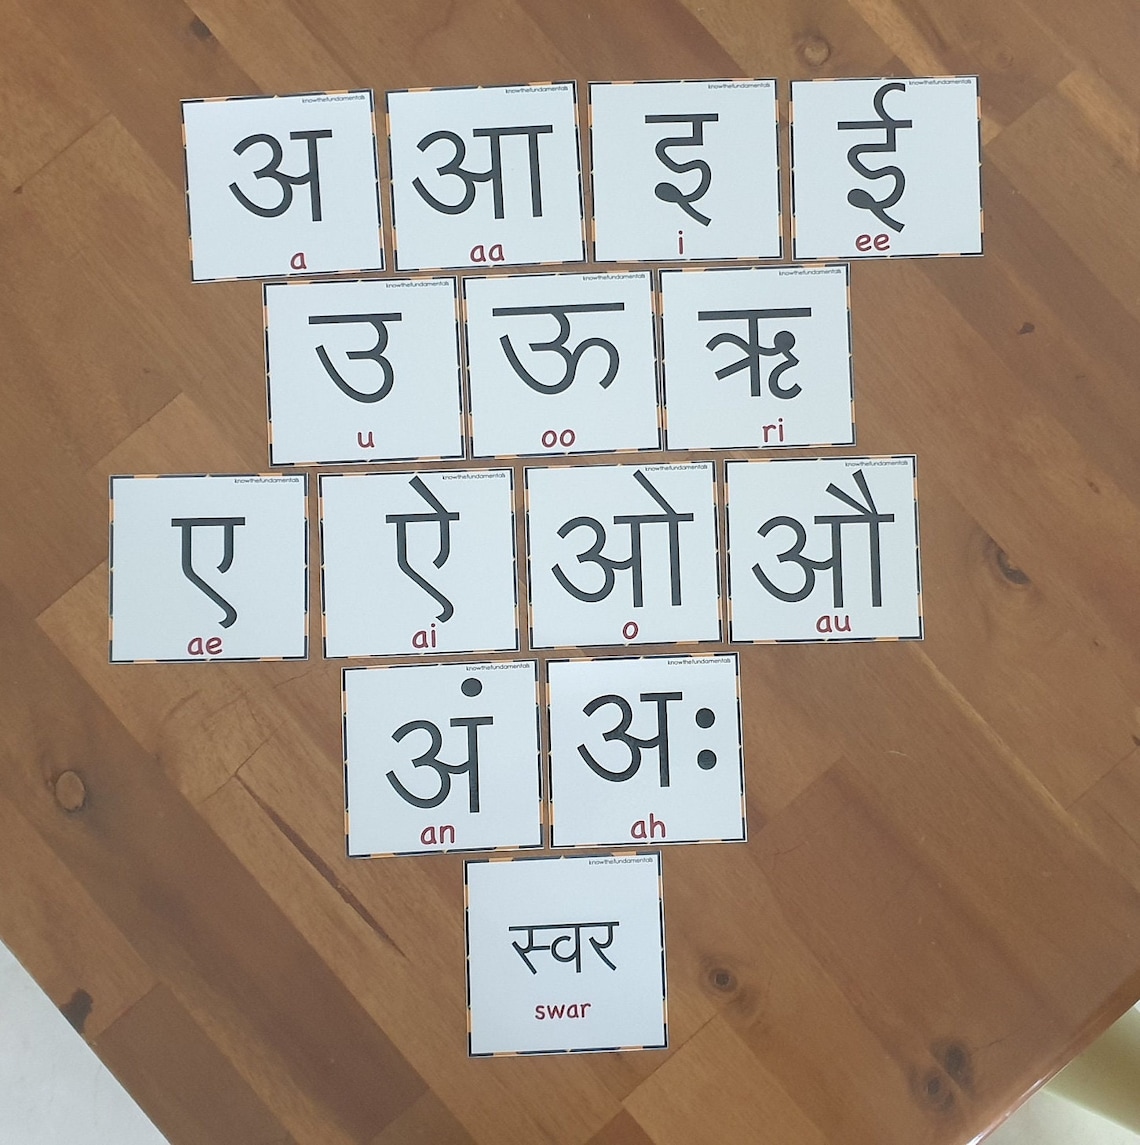 knowthefundamentals knowthefundamentals knowthefundamentals knowthefundamentals
अ आ इ ई
a aa i ee
knowthefundamentals knowthefundamentals knowthefundamentals
उ ऊ ऋ
u oo ri
knowthefundamentals knowthefundamentals knowthefundamentals knowthefundamentals
ए ऐ ओ औ
ae ai o au
knowthefundamentals knowthefundamentals
अं अः
an ah
knowthefundamentals
स्वर
swar